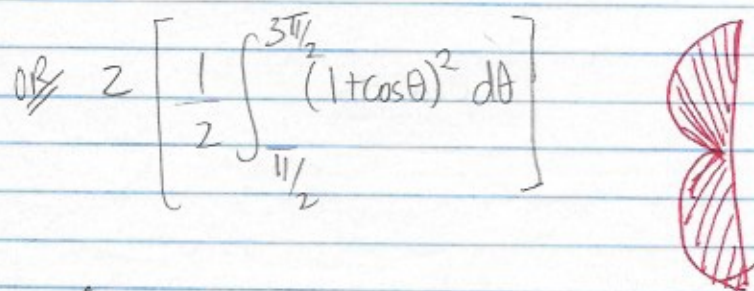 OR 2 [ 1/2 ∫_{π/2}^{3π/2} (1+cosθ)² dθ ]